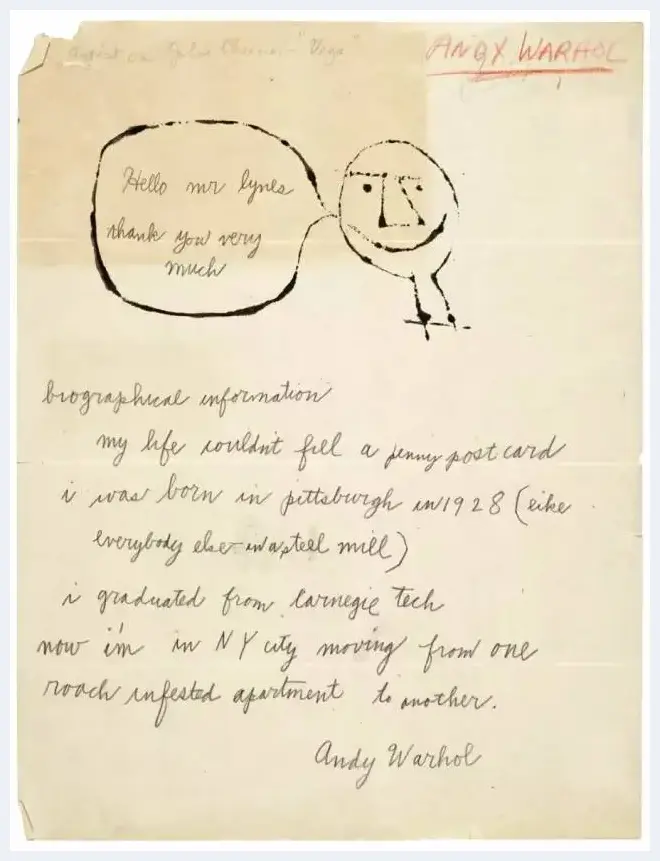 ANDY WARHOL
Hello mr lynes
thank you very
much
biographical information
my life wouldn't fill a penny post card
i was born in pittsburgh in 1928 (like
everybody else - in a steel mill)
i graduated from carnegie tech
now i'm in NY city moving from one
roach infested apartment to another.
Andy Warhol